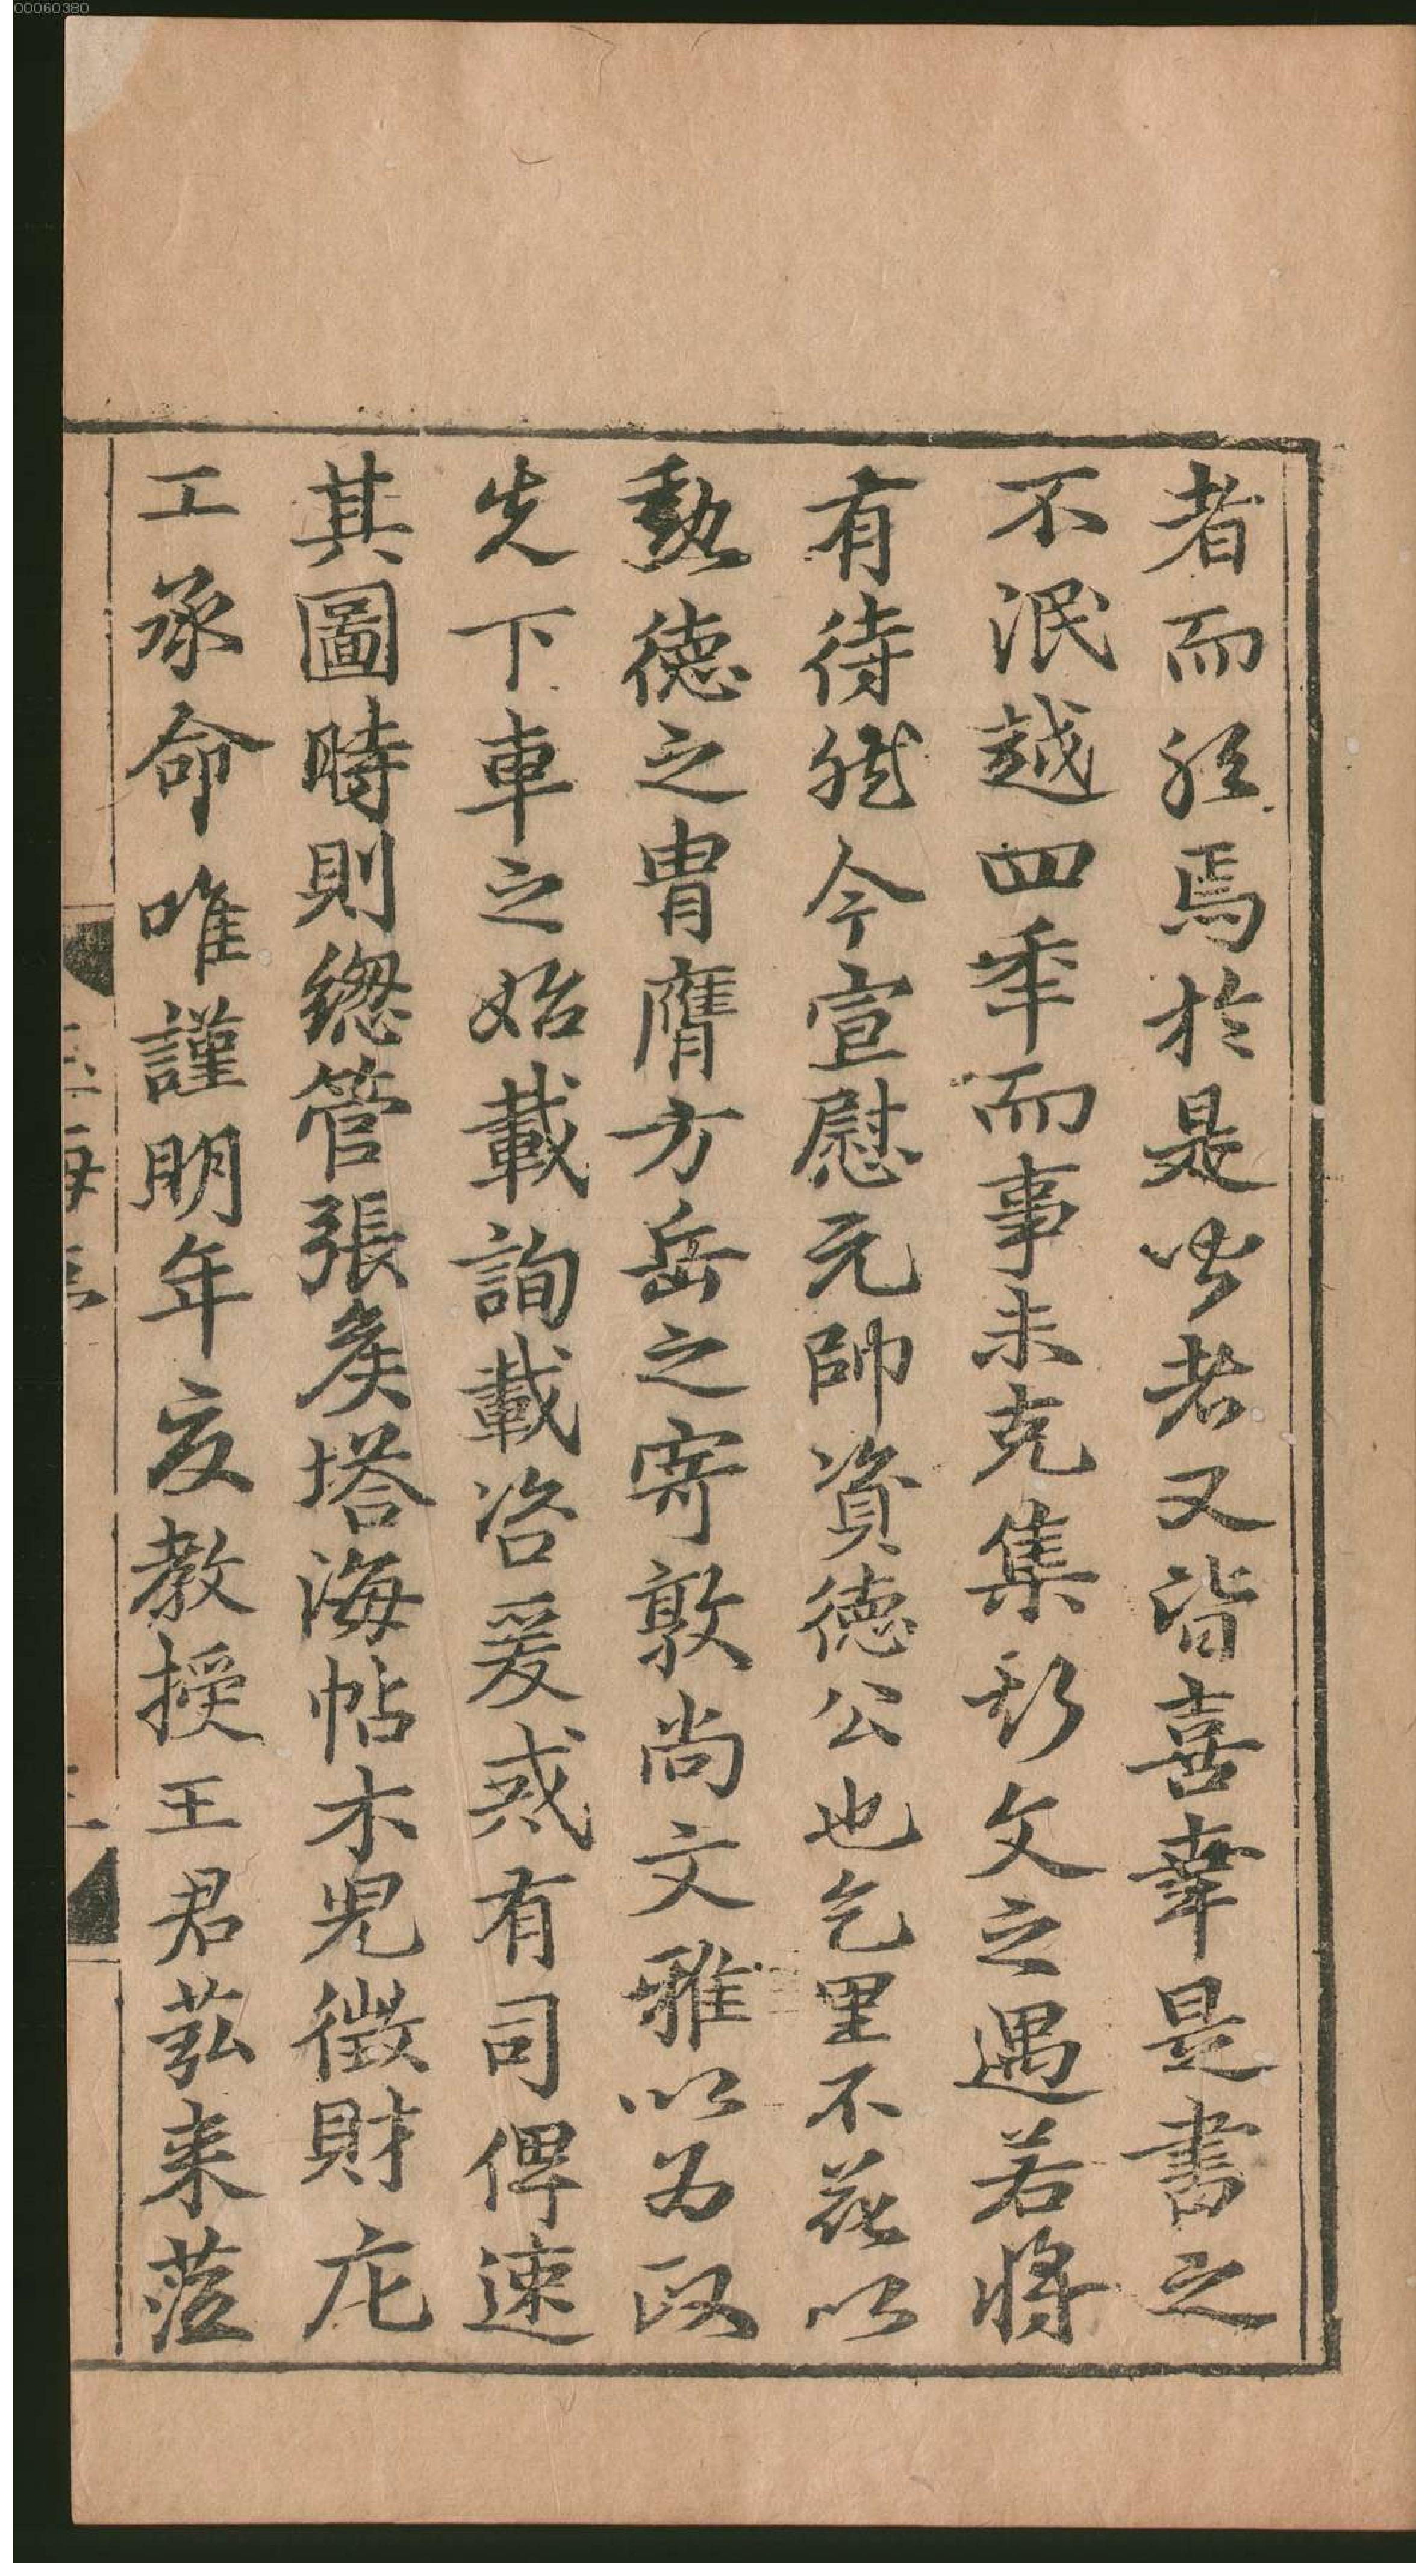 00060380
者而經焉於是喭者又諧喜幸是書之
不泯越四秊而事未克集斯文之遇若將
有待然今宣慰元帥資德公也乞里不花以
勲德之胄膺方岳之寄敦尚文雅以為政
先下車之始載詢載咨爰戒有司俾速
其圖時則總管張矦塔海帖木児徵財庀
工承命唯謹明年夏教授王君茲来蒞
玉海序
三